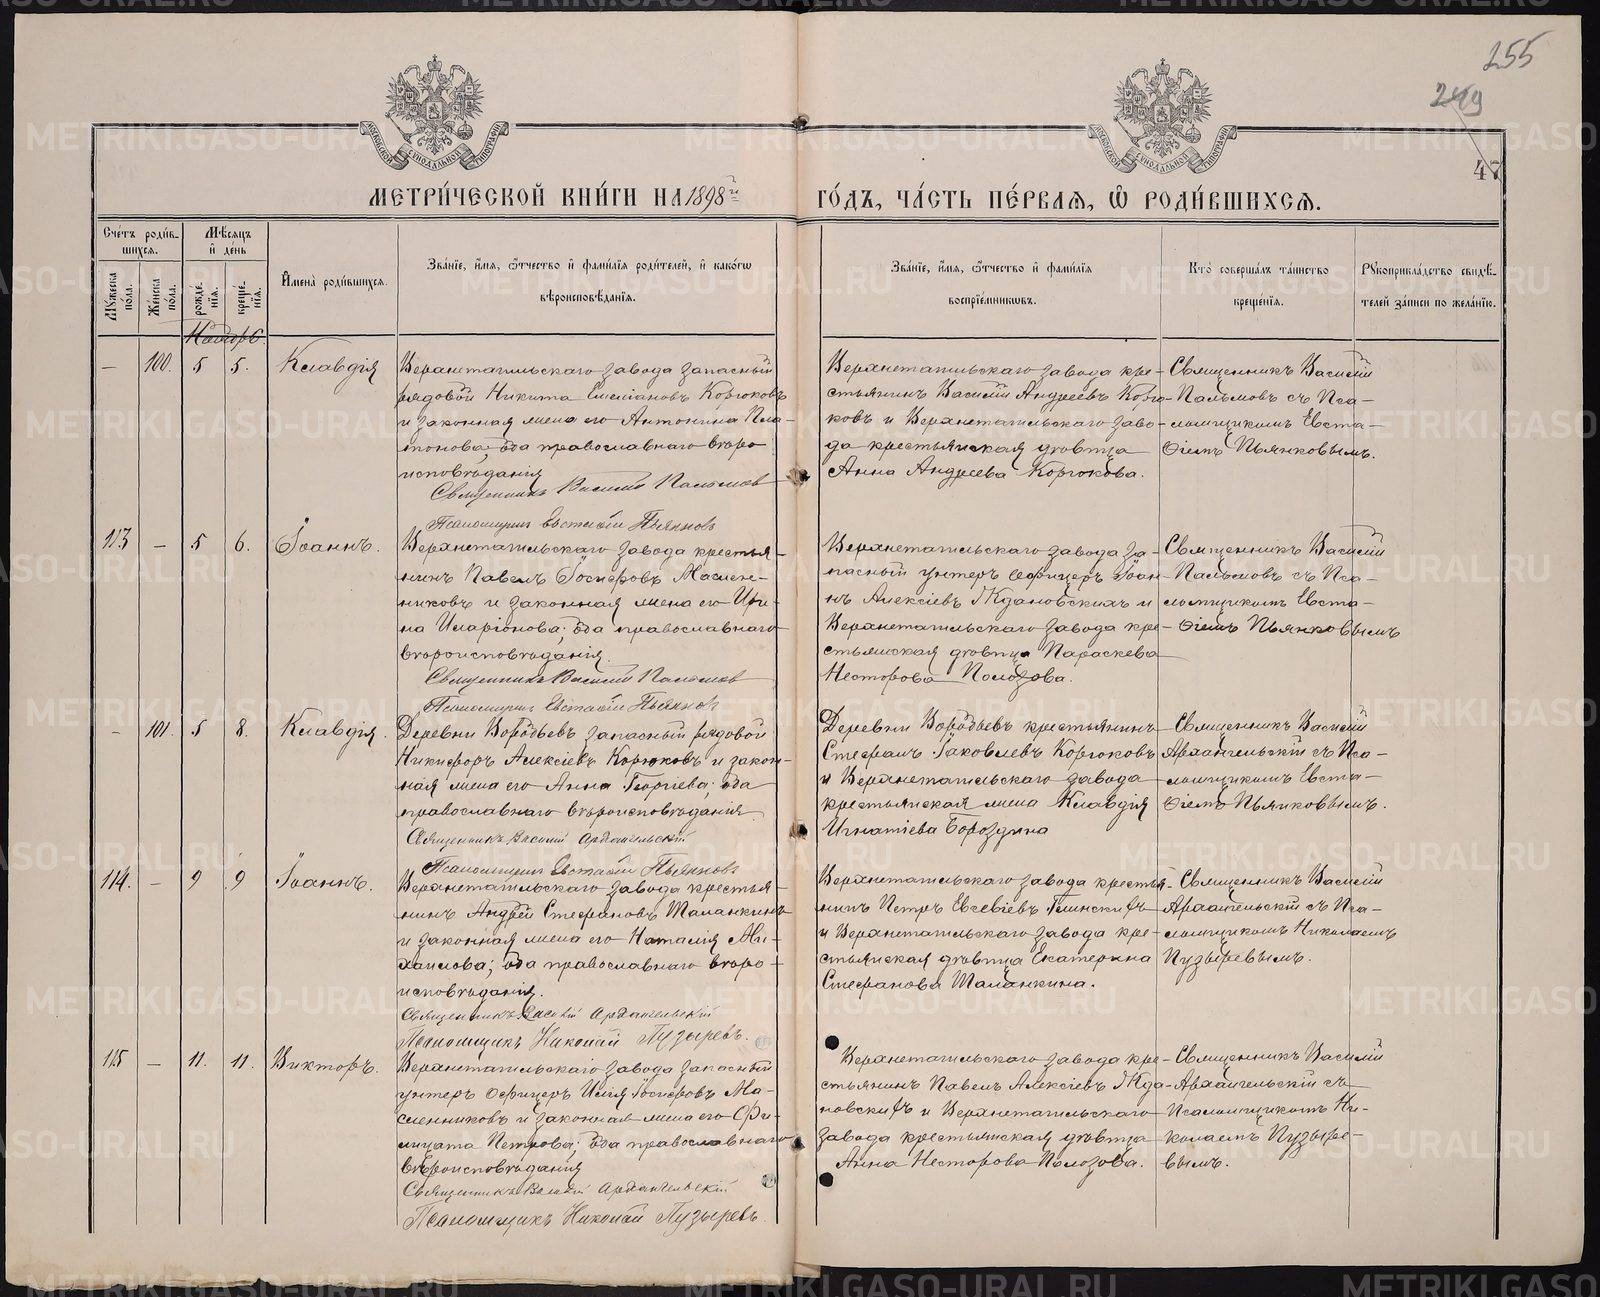 255
249
47
МЕТРИ́ЧЕСКОЙ КНИ́ГИ НА 1898й
ГО́ДЪ, ЧА́СТЬ ПЕ́РВАѦ, Ѡ РОДИ́ВШИХСѦ.
Сче́тъ роди́в-
шихся.
Мѣ́сяцъ
и҆ де́нь
Му́жеска
по́ла.
Же́нска
по́ла.
рожде́-
нїя.
креще́-
нїя.
И҆мена̀ роди́вшихся.
Зва́нїе, и҆́мя, ѻ҆́тчество и҆ фами́лїя роди́телей, и҆ како́гѡ
вѣроисповѣ́данїя.
Зва́нїе, и҆́мя, ѻ҆́тчество и҆ фами́лїя
воспрїе́мникѡвъ.
Кто̀ соверша́лъ та́инство
креще́нїя.
Рꙋкоприкла́дство свидѣ́-
телей за́писи по жела́нїю.
Ноябрь
— 100. 5 5. Клавдія
Верхнетагильскаго завода запасный
рядовой Никита Коргоковъ
и законная жена его Антонина Пла-
тонова; оба православнаго вѣро-
исповѣданія
Священникъ Василій Пальмовъ
Псаломщикъ Евстафій Пьянковъ
Верхнетагильскаго завода кре-
стьянинъ Василій Андреевъ Корго-
ковъ и Верхнетагильскаго заво-
да крестьянская дѣвица
Анна Андреева Коргокова.
Священникъ Василій
Пальмовъ съ Пса-
ломщикомъ Евста-
фіемъ Пьянковымъ.
113 — 5 6. Іоаннъ.
Верхнетагильскаго завода крестья-
нинъ Павелъ Іосифовъ Маслен-
никовъ и законная жена его Ири-
на Иларіонова; оба православнаго
вѣроисповѣданія.
Священникъ Василій Пальмовъ
Псаломщикъ Евстафій Пьянковъ
Верхнетагильскаго завода за-
пасный унтеръ офицеръ Іоан-
нъ Алексіевъ Ждановскихъ и
Верхнетагильскаго завода кре-
стьянская дѣвица Параскева
Несторова Полозова.
Священникъ Василій
Пальмовъ съ Пса-
ломщикомъ Евста-
фіемъ Пьянковымъ
— 101. 5 8. Клавдія.
Деревни Воробьевъ запасный рядовой
Никифоръ Алексіевъ Корюковъ и закон-
ная жена его Анна Георгіева; оба
православнаго вѣроисповѣданія
Священникъ Василій Архангельскій
Псаломщикъ Евстафій Пьянковъ
Деревни Воробьевъ крестьянинъ
Стефанъ Іаковлевъ Коргоковъ
и Верхнетагильскаго завода
крестьянская жена Клавдія
Игнатіева Бороздина
Священникъ Василій
Архангельскій съ Пса-
ломщикомъ Евста-
фіемъ Пьянковымъ.
114. — 9 9 Іоаннъ.
Верхнетагильскаго завода крестья-
нинъ Андрей Стефановъ Маланкинъ
и законная жена его Наталія Ми-
хаилова; оба православнаго вѣро-
исповѣданія.
Священникъ Василій Архангельскій
Псаломщикъ Николай Пузыревъ.
Верхнетагильскаго завода крестья-
нинъ Петръ Евсевіевъ Глинскихъ
и Верхнетагильскаго завода кре-
стьянская дѣвица Екатерина
Стефанова Маланкина.
Священникъ Василій
Архангельскій съ Пса-
ломщикомъ Николаемъ
Пузыревымъ.
115 — 11. 11. Викторъ.
Верхнетагильскаго завода запасный
унтеръ офицеръ Илія Іосифовъ Ма-
сленниковъ и законная жена его Фи-
лицата Петрова; оба православнаго
вѣроисповѣданія
Священникъ Василій Архангельскій
Псаломщикъ Николай Пузыревъ.
Верхнетагильскаго завода кре-
стьянинъ Павелъ Алексіевъ Жда-
новскихъ и Верхнетагильскаго
завода крестьянская дѣвица
Анна Несторова Полозова.
Священникъ Василій
Архангельскій съ
Псаломщикомъ Ни-
колаемъ Пузыре-
вымъ.
METRIKI.GASO-URAL.RU